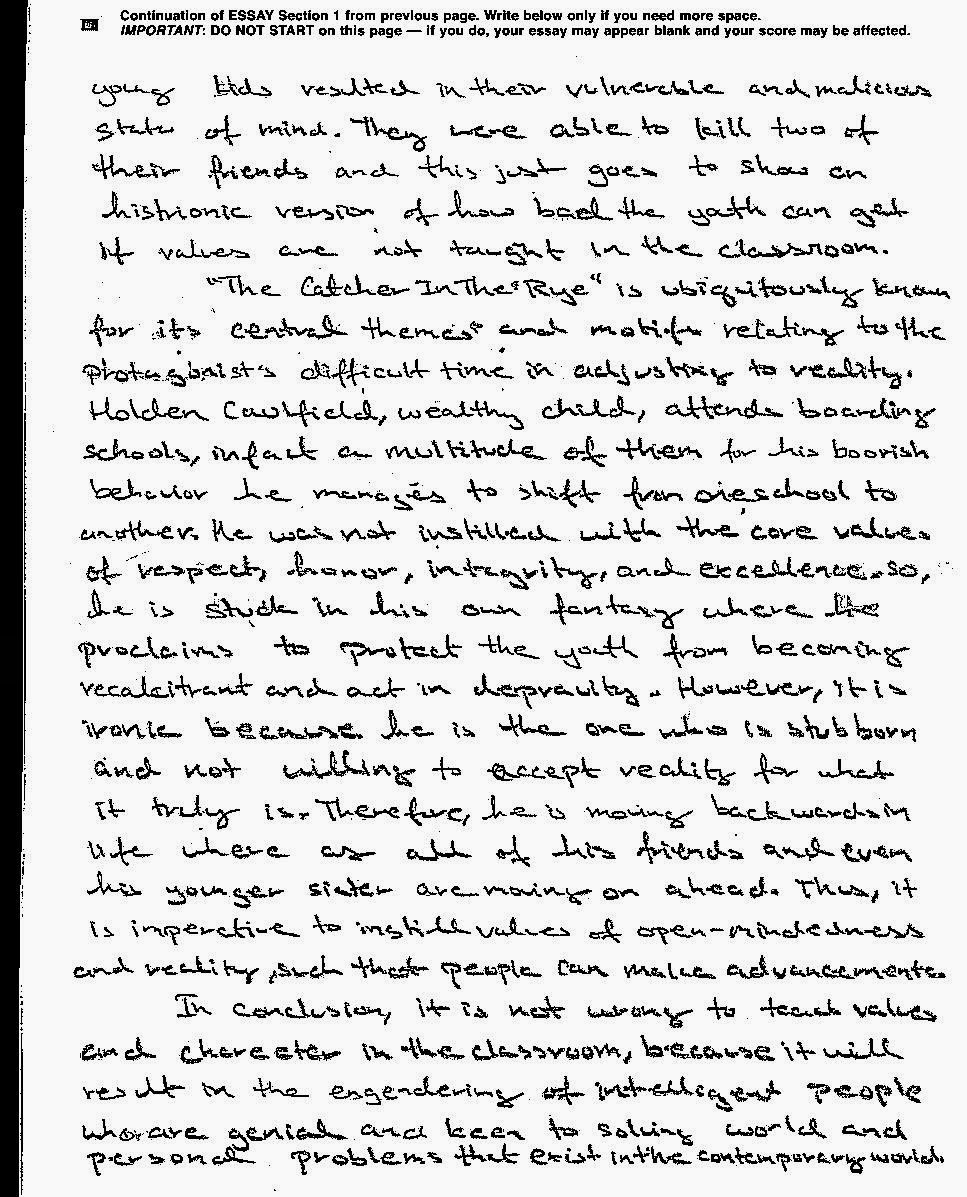 Continuation of ESSAY Section 1 from previous page. Write below only if you need more space.
IMPORTANT: DO NOT START on this page — if you do, your essay may appear blank and your score may be affected.
young kids resulted in their vulnerable and malicious
state of mind. They were able to kill two of
their friends and this just goes to show an
histrionic version of how bad the youth can get
if values are not taught in the classroom.
"The Catcher In The Rye" is ubiquitously known
for its central themes and motifs relating to the
protagonist's difficult time in adjusting to reality.
Holden Caulfield, wealthy child, attends boarding
schools, infact a multitude of them for his boorish
behavior he manages to shift from one school to
another. He was not instilled with the core values
of respect, honor, integrity, and excellence. So,
he is stuck in his own fantasy where he
proclaims to protect the youth from becoming
recalcitrant and act in depravity. However, it is
ironic because he is the one who is stubborn
and not willing to accept reality for what
it truly is. Therefore, he is moving backwards in
life where as all of his friends and even
his younger sister are moving on ahead. Thus, it
is imperative to instill values of open-mindedness
and reality, such that people can make advancements.
In conclusion, it is not wrong to teach values
and character in the classroom, because it will
result in the engendering of intelligent people
who are genial and keen to solving world and
personal problems that exist in the contemporary world.